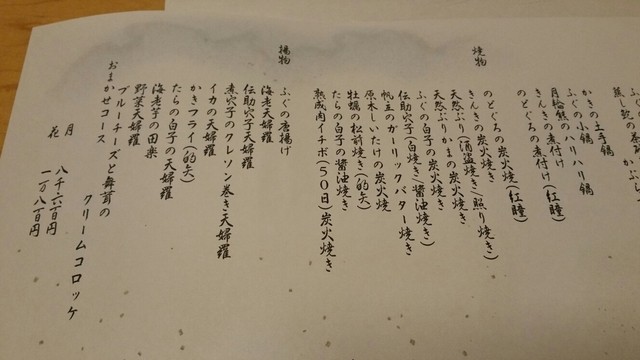 蒸し
かきの土手鍋
ふぐの小鍋
月輪熊のハリハリ鍋
きんきの煮付け
のどぐろの煮付け(紅瞳)
焼物
のどぐろの炭火焼き(紅瞳)
きんきの炭火焼き
天然ぶり(酒盗焼き)(照り焼き)
天然ぶりかまの炭火焼き
ふぐの白子の炭火焼き
伝助穴子(白焼き)(醤油焼き)
帆立のガーリックバター焼き
原木しいたけの炭火焼
牡蠣の松前焼き(的矢)
たらの白子の醤油焼き
熟成肉イチボ(50日)炭火焼き
揚物
ふぐの唐揚げ
海老天婦羅
伝助穴子天婦羅
煮穴子のクレソン巻き天婦羅
イカの天婦羅
かきフライ(的矢)
たらの白子の天婦羅
海老芋の田楽
野菜天婦羅
ブルーチーズと舞茸の
クリームコロッケ
おまかせコース
月 八千六百円
花 一万八百円